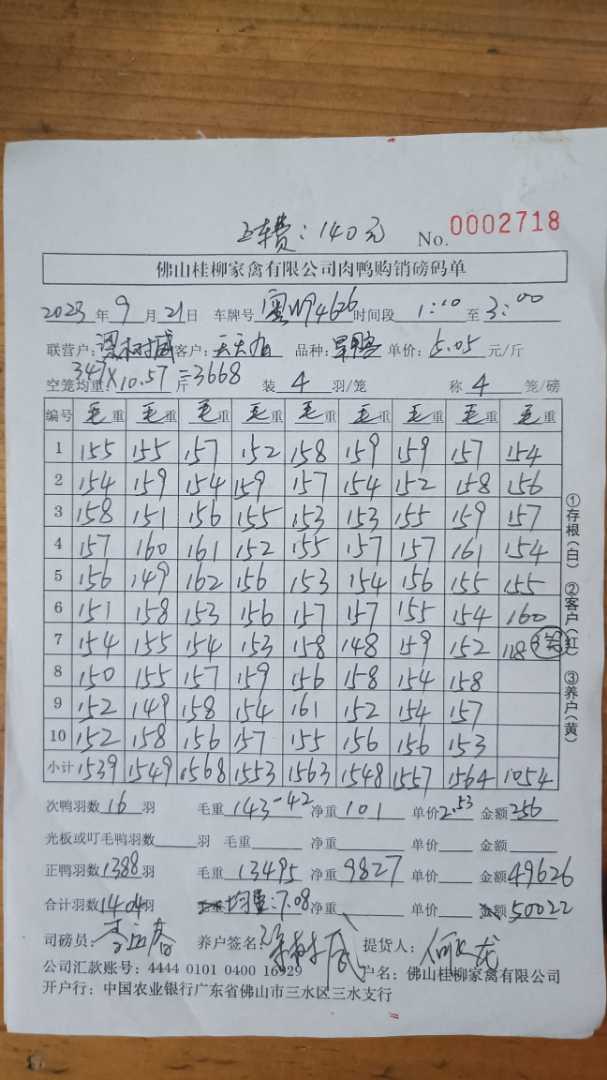 过车费：140元
No. 0002718
佛山桂柳家禽有限公司肉鸭购销磅码单
2023年9月21日 车牌号 粤W94626 时间段 1:10 至 3:00
联营户： 树威 客户： 天天旺 品种： 旱鸭 单价： 5.05 元/斤
空笼均重 347×10.57 斤=3668 装 4 羽/笼 称 4 笼/磅
编号 毛重 毛重 毛重 毛重 毛重 毛重 毛重 毛重 毛重
1 155 155 157 152 158 159 159 157 154
2 154 159 154 159 157 154 152 158 156
3 158 151 156 155 153 153 155 159 157
4 157 160 161 152 155 157 157 161 154
5 156 149 162 156 153 154 156 155 155
6 151 158 153 156 157 157 155 154 160
7 154 155 154 153 158 148 159 152 118 3笼
8 150 155 157 159 156 158 154 158
9 152 149 158 154 161 152 154 157
10 152 158 156 157 155 156 156 153
小计 1539 1549 1568 1553 1563 1548 1557 1564 1054
次鸭羽数 16 羽 毛重 143-42 净重 101 单价 2.53 金额 256
光板或叮毛鸭羽数 羽 毛重 净重 单价 金额
正鸭羽数 1388 羽 毛重 13495 净重 9827 单价 金额 49626
合计羽数 1404 羽 均重：7.08 净重 单价 金额 50022
司磅员： 养户签名： 提货人：
公司汇款账号：4444 0101 0400 16929 户名：佛山桂柳家禽有限公司
开户行：中国农业银行广东省佛山市三水区三水支行
①存根（白） ②客户（红） ③养户（黄）